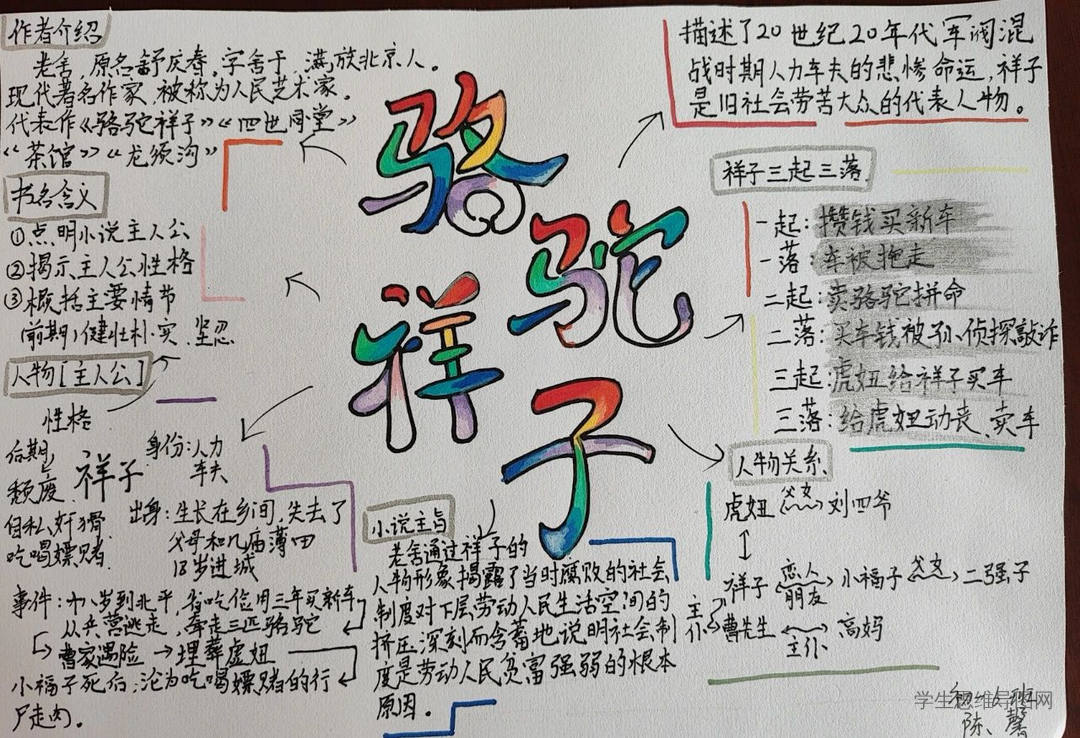 作者介绍
老舍,原名舒庆春,字舍予,满族北京人。
现代著名作家,被称为人民艺术家。
代表作《骆驼祥子》《四世同堂》
《茶馆》《龙须沟》
书名含义
①点明小说主人公
②揭示主人公性格
③概括主要情节
前期:健壮朴实、坐忍
人物[主人公]
性格
后期
颓废
自私奸猾
吃喝嫖赌
祥子
身份:人力
车夫
出身:生长在乡间,失去了
父母和几亩薄田
18岁进城
事件:十八岁到北平,省吃俭用三年买新车
从兵营逃走,牵走三匹骆驼
曹家遇险→埋葬虚妞
小福子死后,沦为吃喝嫖赌的行
尸走肉。
骆
驼
祥
子
小说主旨
老舍通过祥子的
人物形象揭露了当时腐败的社会
制度对下层劳动人民生活空间的
挤压,深刻而含蓄地说明社会制
度是劳动人民贫富强弱的根本
原因。
描述了20世纪20年代军阀混
战时期人力车夫的悲惨命运,祥子
是旧社会劳苦大众的代表人物。
祥子三起三落
一起:攒钱买新车
一落:车被拖走
二起:卖骆驼拼命
二落:买车钱被孙侦探敲诈
三起:虎妞给祥子买车
三落:给虎妞办丧、卖车
人物关系
虎妞 父女 刘四爷
祥子 恋人 朋友 小福子 父女 二强子
主仆
曹先生 主仆 高妈
初一八班
陈、馨
学生思维导图网